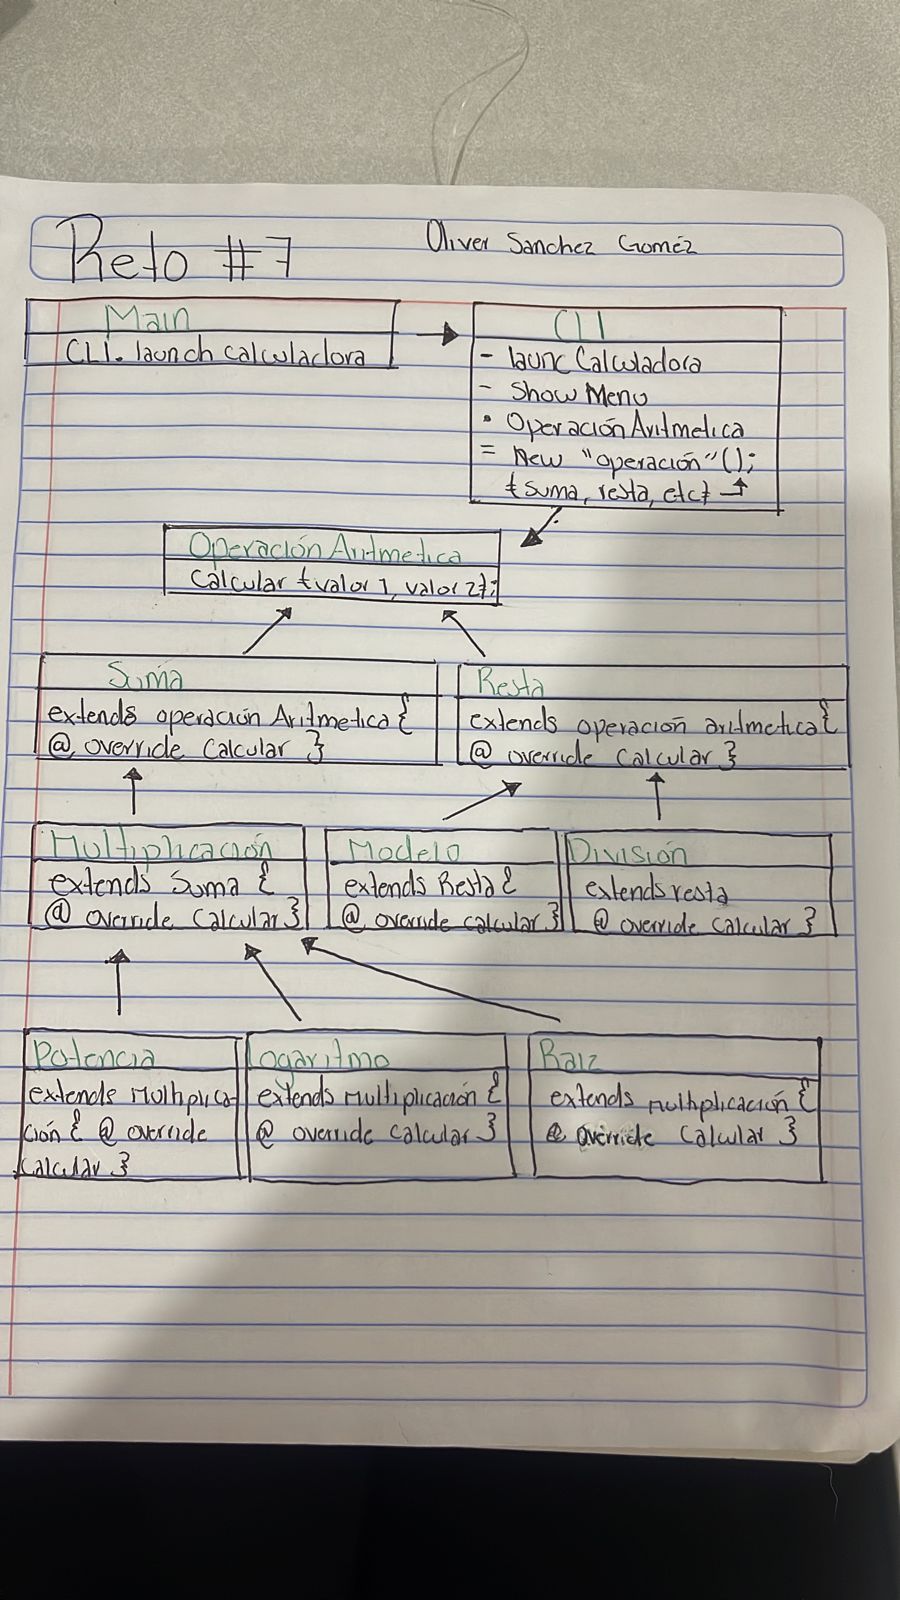 Reto #7
Oliver Sanchez Goméz
Main
CLI. launch calculadora
CLI
- launc Calculadora
- Show Menu
• Operación Aritmetica
= New "operación"();
{suma, resta, etc}
Operación Aritmetica
Calcular {valor 1, valor 2};
Suma
extends operación Aritmetica {
@ override Calcular }
Resta
extends operación aritmetica {
@ override Calcular }
Multiplicación
extends Suma {
@ override Calcular }
Modelo
extends Resta {
@ override calcular }
División
extends resta
@ override Calcular }
Potencia
extends Multiplica-
ción { @ override
Calcular }
logaritmo
extends Multiplicación {
@ override calcular }
Raiz
extends multiplicación {
@ override Calcular }